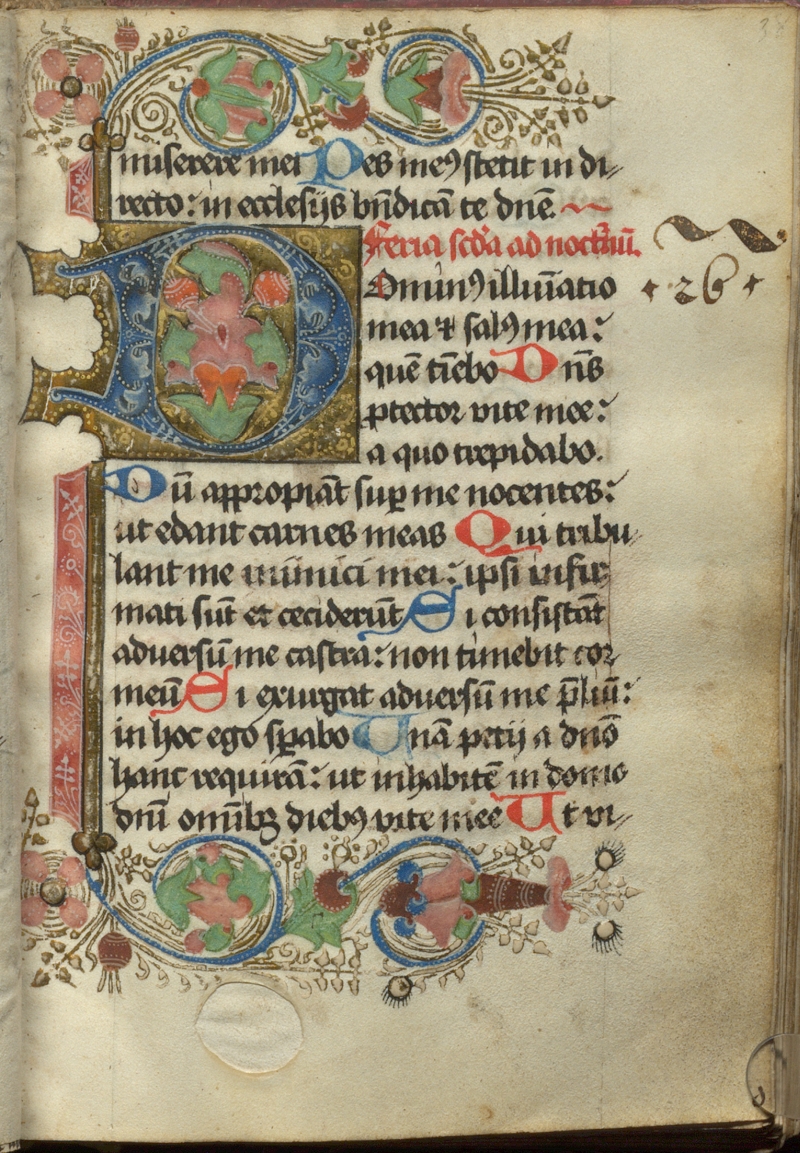 miserere mei Pes me⁹ stetit in di-
recto: in ecclesijs bn̄dicā te dn̄e.
Feria scd̄a ad noctn̄ū.
Dominꝰ illuīatio
mea ⁊ salꝰ mea:
quē tīebo Dn̄s
ꝓtector vite mee:
a quo trepidabo.
Dū appropiāt suꝑ me nocentes:
ut edant carnes meas Qui tribu-
lant me inimici mei: ipsi infir-
mati sūt et ceciderūt Si consistāt
aduersū me castra: non timebit cor
meū Si exurgat aduersū me p̄liū:
in hoc ego sꝑabo Unā petij a dnō
hanc requirā: ut inhabitē in domo
dn̄i omībꝫ diebꝰ vite mee Ut vi-
26